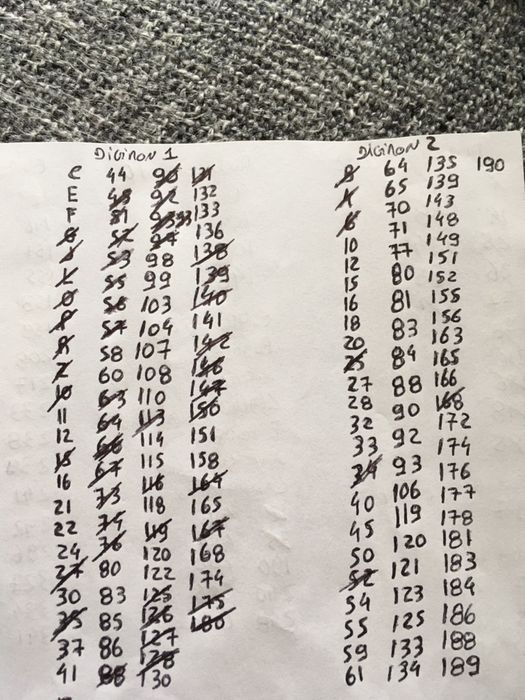 DiGiMON 1
C 44 90
E 92 132
F 51 93 133
52 97 136
53 98 138
55 99 139
56 103 140
57 104 141
58 107 142
60 108 146
10 63 110 147
11 64 113 150
12 66 114 151
15 67 115 158
16 73 116 164
21 74 118 165
22 76 119 167
24 80 120 168
27 83 122 174
30 85 125 175
35 86 126 180
37 88 127
41 128
130
DiGiMON 2
64 135 190
65 139
70 143
10 71 148
12 77 149
15 80 151
16 81 152
18 83 155
20 84 156
25 88 163
27 90 165
28 92 166
32 93 168
33 106 172
34 119 174
40 120 176
45 121 177
50 123 178
52 125 181
54 133 183
55 134 184
59 186
61 188
189